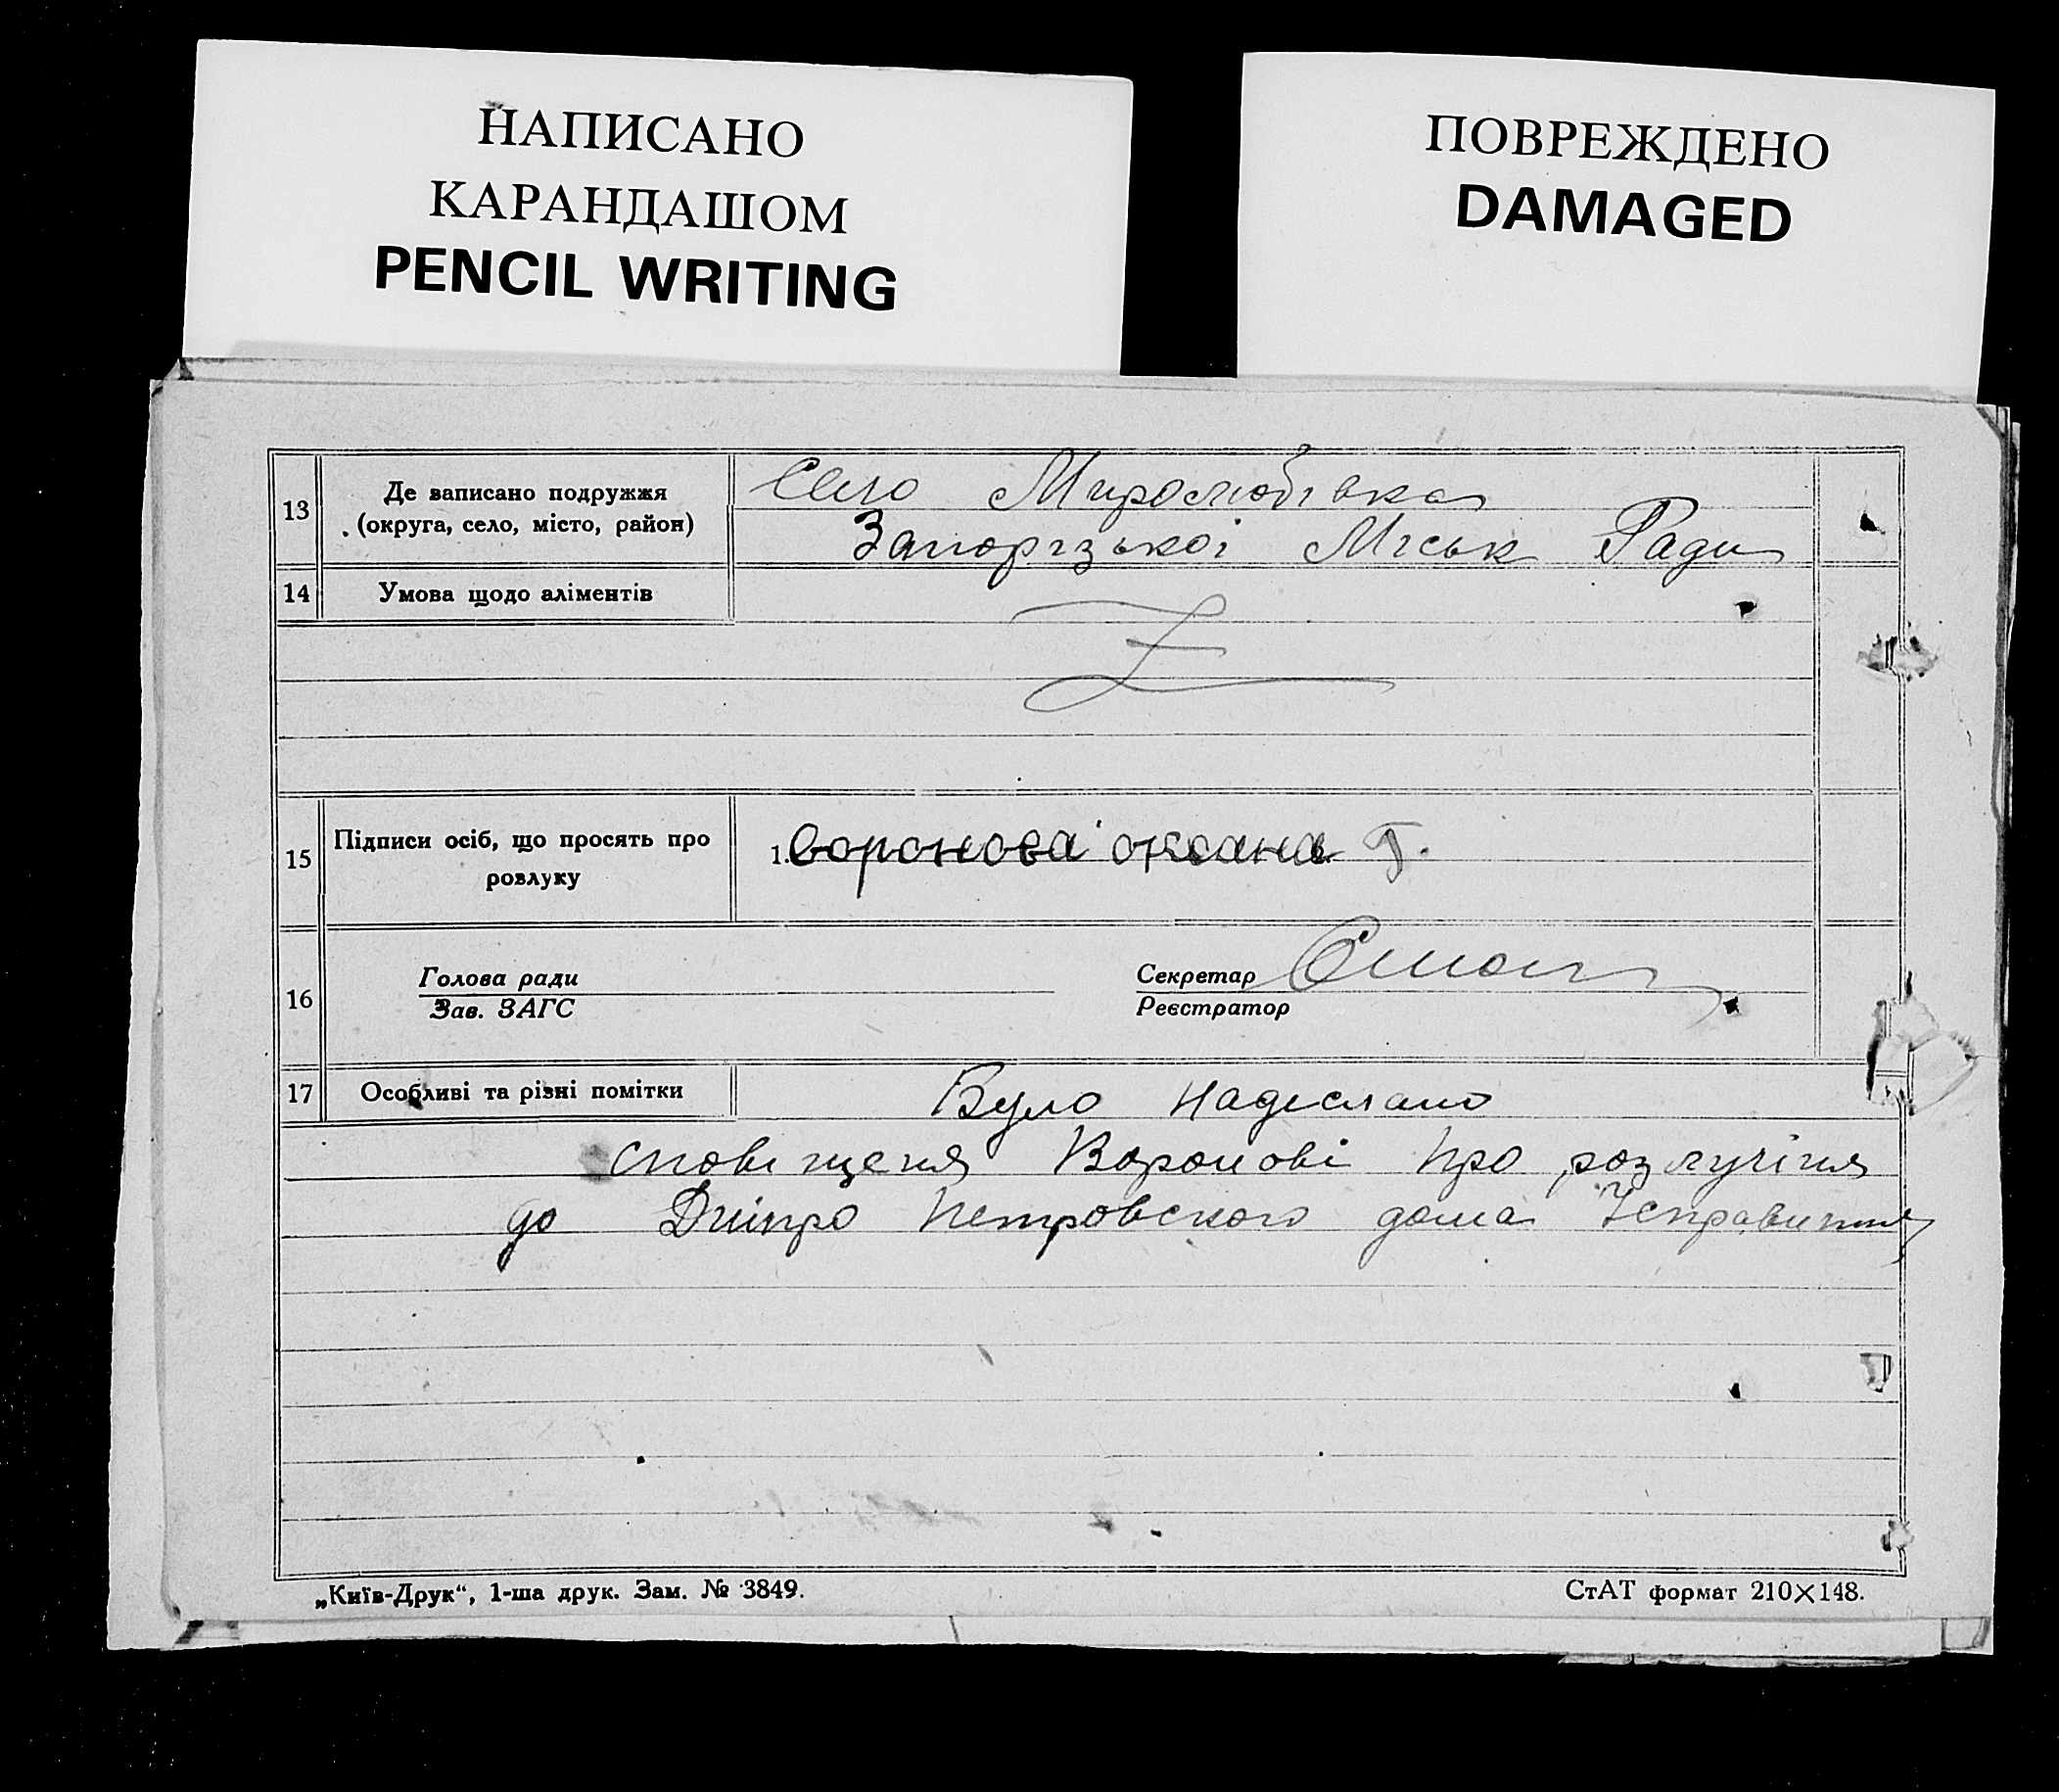 НАПИСАНО
КАРАНДАШОМ
PENCIL WRITING
ПОВРЕЖДЕНО
DAMAGED
13 Де записано подружжя
(округа, село, місто, район)
Село Миролюбівка
Запорізької Міськ Ради
14 Умова щодо аліментів
15 Підписи осіб, що просять про
розлуку
1. воронова оксана Г.
16 Голова ради
Зав. ЗАГС
Секретар
Реєстратор
17 Особливі та різні помітки
Було надіслано
сповіщеня Воронові про розлучіня
до Дніпро Петровского дома
„Київ-Друк“, 1-ша друк. Зам. № 3849.
СтАТ формат 210×148.